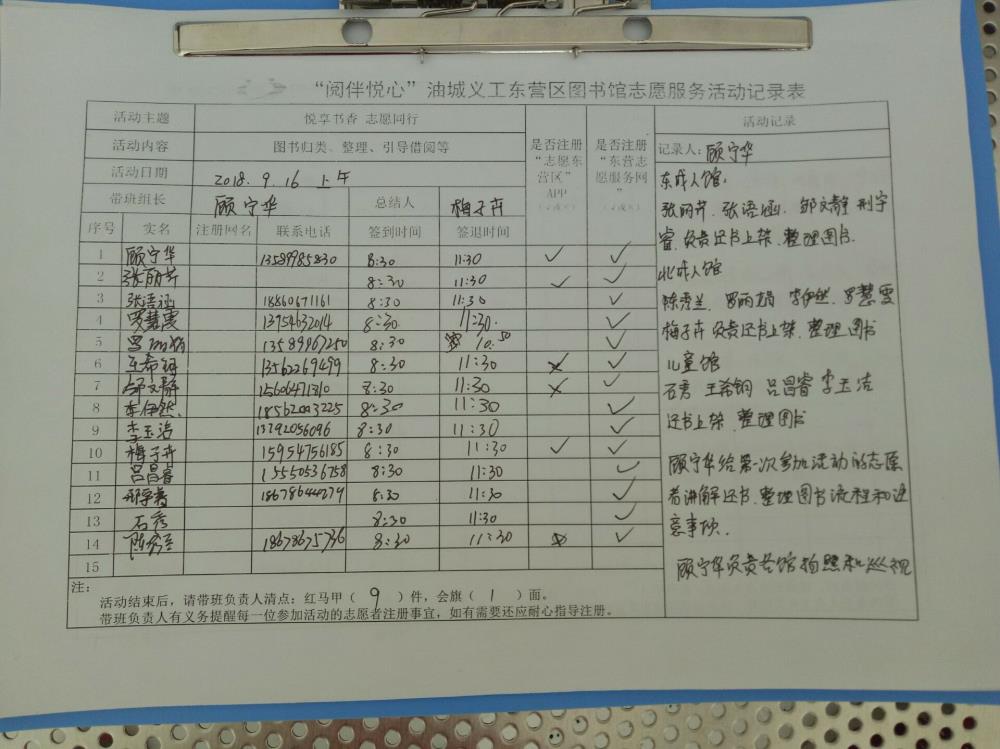 “阅伴悦心”油城义工东营区图书馆志愿服务活动记录表
活动主题 悦享书香 志愿同行 是否注册“志愿东营区”APP 是否注册“东营志愿服务网” 活动记录
活动内容 图书归类、整理、引导借阅等
活动日期 2018.9.16 上午
带班组长 顾宁华 总结人 梅子卉
序号 实名 注册网名 联系电话 签到时间 签退时间
1 顾宁华 13589985830 8:30 11:30 ✓ ✓
2 张丽芹 8:30 11:30 ✓ ✓
3 张语涵 18860671161 8:30 11:30 ✓
4 罗慧雯 13954632014 8:30 11:30. ✓
5 罗丽娟 13589967250 8:30 10.50 ✓
6 王希钢 13562269499 8:30 11:30 × ✓
7 邹文静 15606471310 8:30 11:30 × ✓
8 李伊然 18562003225 8:30 11:30 ✓
9 李玉洁 13292056096 8:30 11:30 ✓
10 梅子卉 15954756185 8:30 11:30 ✓ ✓
11 吕昌睿 15550536758 8:30 11:30 ✓
12 邢宇睿 18678644279 8:30 11:30 ✓
13 石秀 8:30 11:30 ✓
14 陈秀兰 18678675736 8:30 11:30 ✓
15
记录人:顾宁华
东成人馆:
张丽芹、张语涵、邹文静 邢宇
睿 负责还书上架、整理图书.
北成人馆
陈秀兰 罗丽娟 李伊然 罗慧雯
梅子卉 负责还书上架、整理图书
儿童馆
石秀 王希钢 吕昌睿 李玉洁
还书上架、整理图书
顾宁华给第一次参加活动的志愿
者讲解还书、整理图书流程和注
意事项.
顾宁华负责各馆拍照和巡视
注:
活动结束后,请带班负责人清点:红马甲( 9 )件,会旗( 1 )面。
带班负责人有义务提醒每一位参加活动的志愿者注册事宜,如有需要还应耐心指导注册。